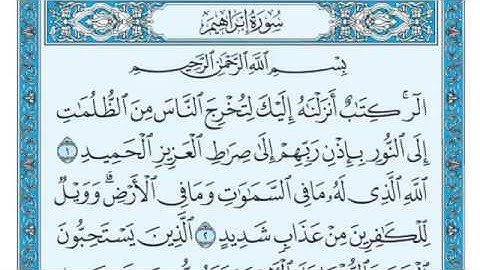 سُورَةُ إِبْرَاهِيمَ
بِسْمِ اللَّهِ الرَّحْمَٰنِ الرَّحِيمِ
الٓر ۚ كِتَٰبٌ أَنزَلْنَٰهُ إِلَيْكَ لِتُخْرِجَ النَّاسَ مِنَ الظُّلُمَاتِ
إِلَى النُّورِ بِإِذْنِ رَبِّهِمْ إِلَىٰ صِرَاطِ الْعَزِيزِ الْحَمِيدِ ١
اللَّهِ الَّذِي لَهُ مَا فِي السَّمَٰوَٰتِ وَمَا فِي الْأَرْضِ ۗ وَوَيْلٌ
لِّلْكَٰفِرِينَ مِنْ عَذَابٍ شَدِيدٍ ٢ الَّذِينَ يَسْتَحِبُّونَ